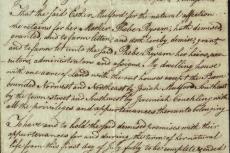 That the said Esther Mulford for the natural affection
she bears for her Mother Phebe Ryson hath demised
granted and to farm letten, and doth hereby demise grant
and to farm let unto the said Phebe Ryson her heirs, exe-
cutors, administrators and assigns, My dwelling house
with one acre of land with the out houses except the Barn
bounded Norwest and Northeast by Mulford, Southeast
by the town street and Southwest by Jeremiah Conckling with
all the privileges and appurtenances thereunto belonging
To have and to hold the said demised premises with their
appurtenances for and during the term of her natural
life from this first day of fully to be compleat & ended